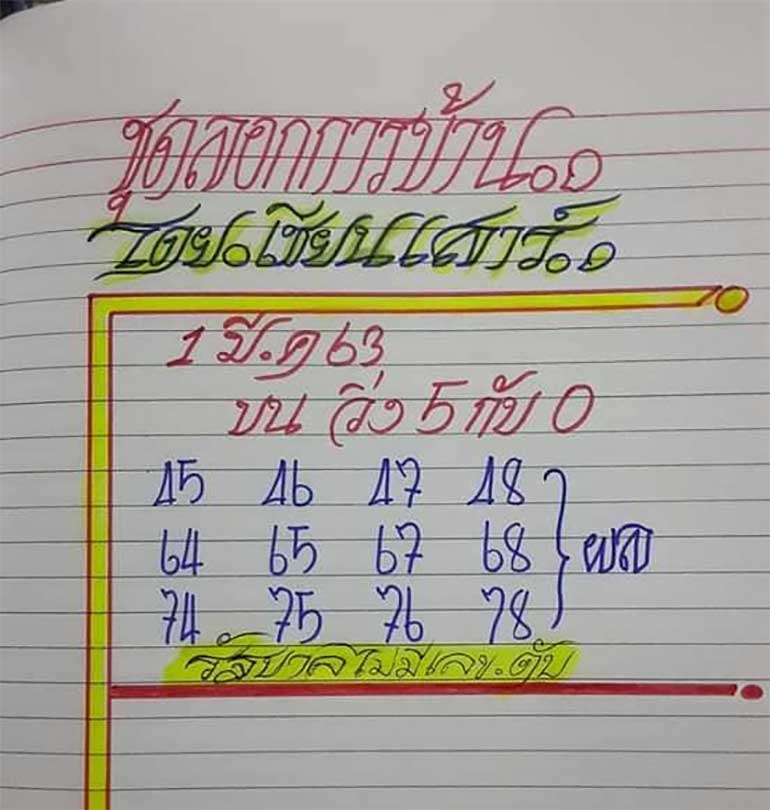 ชุดลอกการบ้าน.
โดย.เซียนเสาร์.
1 มี.ค 63
บน วิ่ง 5 กับ 0
45 46 47 48
64 65 67 68
74 75 76 78
รัฐบาลไม่มีเลข.ดับ